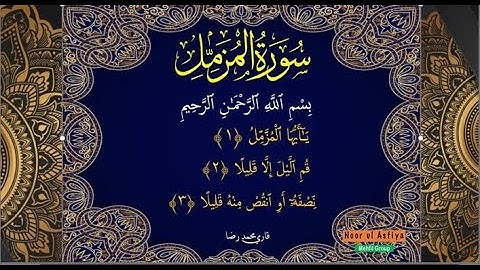 سُورَةُ الْمُزَّمِّلِ
بِسْمِ ٱللَّهِ ٱلرَّحْمَٰنِ ٱلرَّحِيمِ
يَـٰٓأَيُّهَا ٱلْمُزَّمِّلُ ﴿١﴾
قُمِ ٱلَّيْلَ إِلَّا قَلِيلًا ﴿٢﴾
نِّصْفَهُۥٓ أَوِ ٱنقُصْ مِنْهُ قَلِيلًا ﴿٣﴾
قاری محمد رضا
Noor ul Asfiya
Mehfil Group